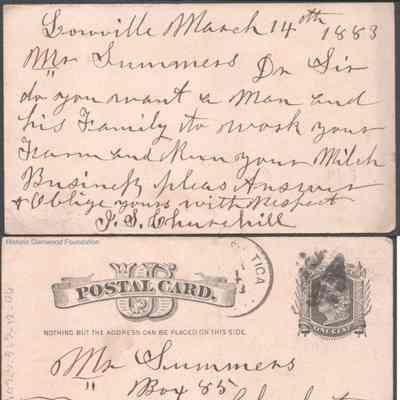 Lowville March 14th 1883
Mr Summers Dr Sir
do you want a Man and
his Family to work your
Farm and Run your Milch
Business pleas Answer
& Oblige yours with respect
J. S. Churchill
Historic Glenwood Foundation
U S
POSTAL CARD.
NOTHING BUT THE ADDRESS CAN BE PLACED ON THIS SIDE.
TICA
ONE CENT
Mr Summers
" Box 85